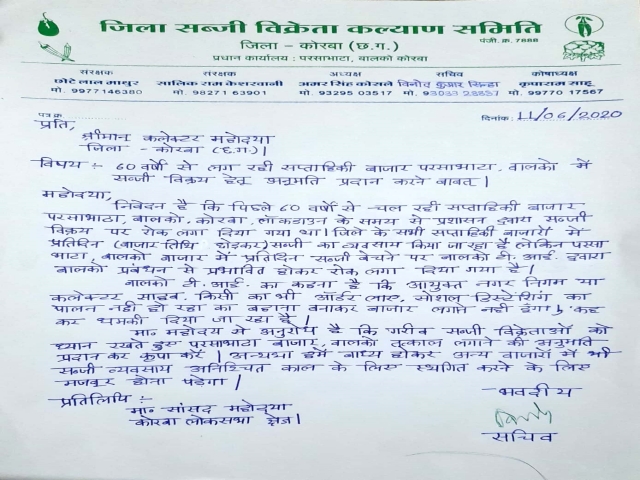 जिला सब्जी विक्रेता कल्याण समिति
पंजी. क्र. 7888
जिला - कोरबा (छ.ग.)
प्रधान कार्यालय : परसाभाटा, बालको कोरबा
संरक्षक संरक्षक अध्यक्ष सचिव कोषाध्यक्ष
छोटे लाल माथुर सालिक राम केशरवानी अमर सिंह कोसले विनोद कुमार सिन्हा कृपाराम साहू
मो. 9977146380 मो. 98271 63901 मो. 93295 03517 मो. मो. 99770 17567
पत्र क्र. दिनांक: 11/06/2020
प्रति,
श्रीमान् कलेक्टर महोदया
जिला - कोरबा (छ.ग.)।
विषय :- 60 वर्षो से लग रही सप्ताहिकी बाजार परसाभाटा, बालको में
सब्जी विक्रय हेतू अनुमति प्रदान करने बाबत्।
महोदया,
निवेदन है कि पिछले 60 वर्षो से चल रही सप्ताहिकी बाजार
परसाभाठा, बालको, कोरबा, लॉकडाउन के समय से प्रशासन द्वारा सब्जी
विक्रय पर रोक लगा दिया गया था। जिले के सभी सप्ताहिकी बाजारों में
प्रतिदिन (बाजार तिथि छोड़कर) सब्जी का व्यवसाय किया जा रहा है लेकिन परसा
भाटा, बालको बाजार में प्रतिदिन सब्जी बेचने पर बालको टी. आई. द्वारा
बालको प्रबंधन से प्रभावित होकर रोक लगा दिया गया है।
बालको टी. आई. का कहना है कि आयुक्त नगर निगम या
कलेक्टर साहब, किसी का भी ऑर्डर लाए, सोशल डिस्टेंशिंग का
पालन नही हो रहा का बहाना बनाकर बाजार लगाने नही दूंगा। कह
कर धमकी दिया जा रहा है।
मा॰ महोदय से अनुरोध है कि गरीब सब्जी विक्रेताओं को
ध्यान रखते हुए परसाभाटा बाजार, बालको तत्काल लगाने की अनुमति
प्रदान कर कृपा करें। अन्यथा हमें बाध्य होकर अन्य बाजारों में भी
सब्जी व्यवसाय अनिश्चित काल के लिए स्थगित करने के लिए
मजबूर होना पडेगा।
प्रतिलिपि :- भवदीय
मा॰ सांसद महोदया
कोरबा लोकसभा क्षेत्र।
सचिव